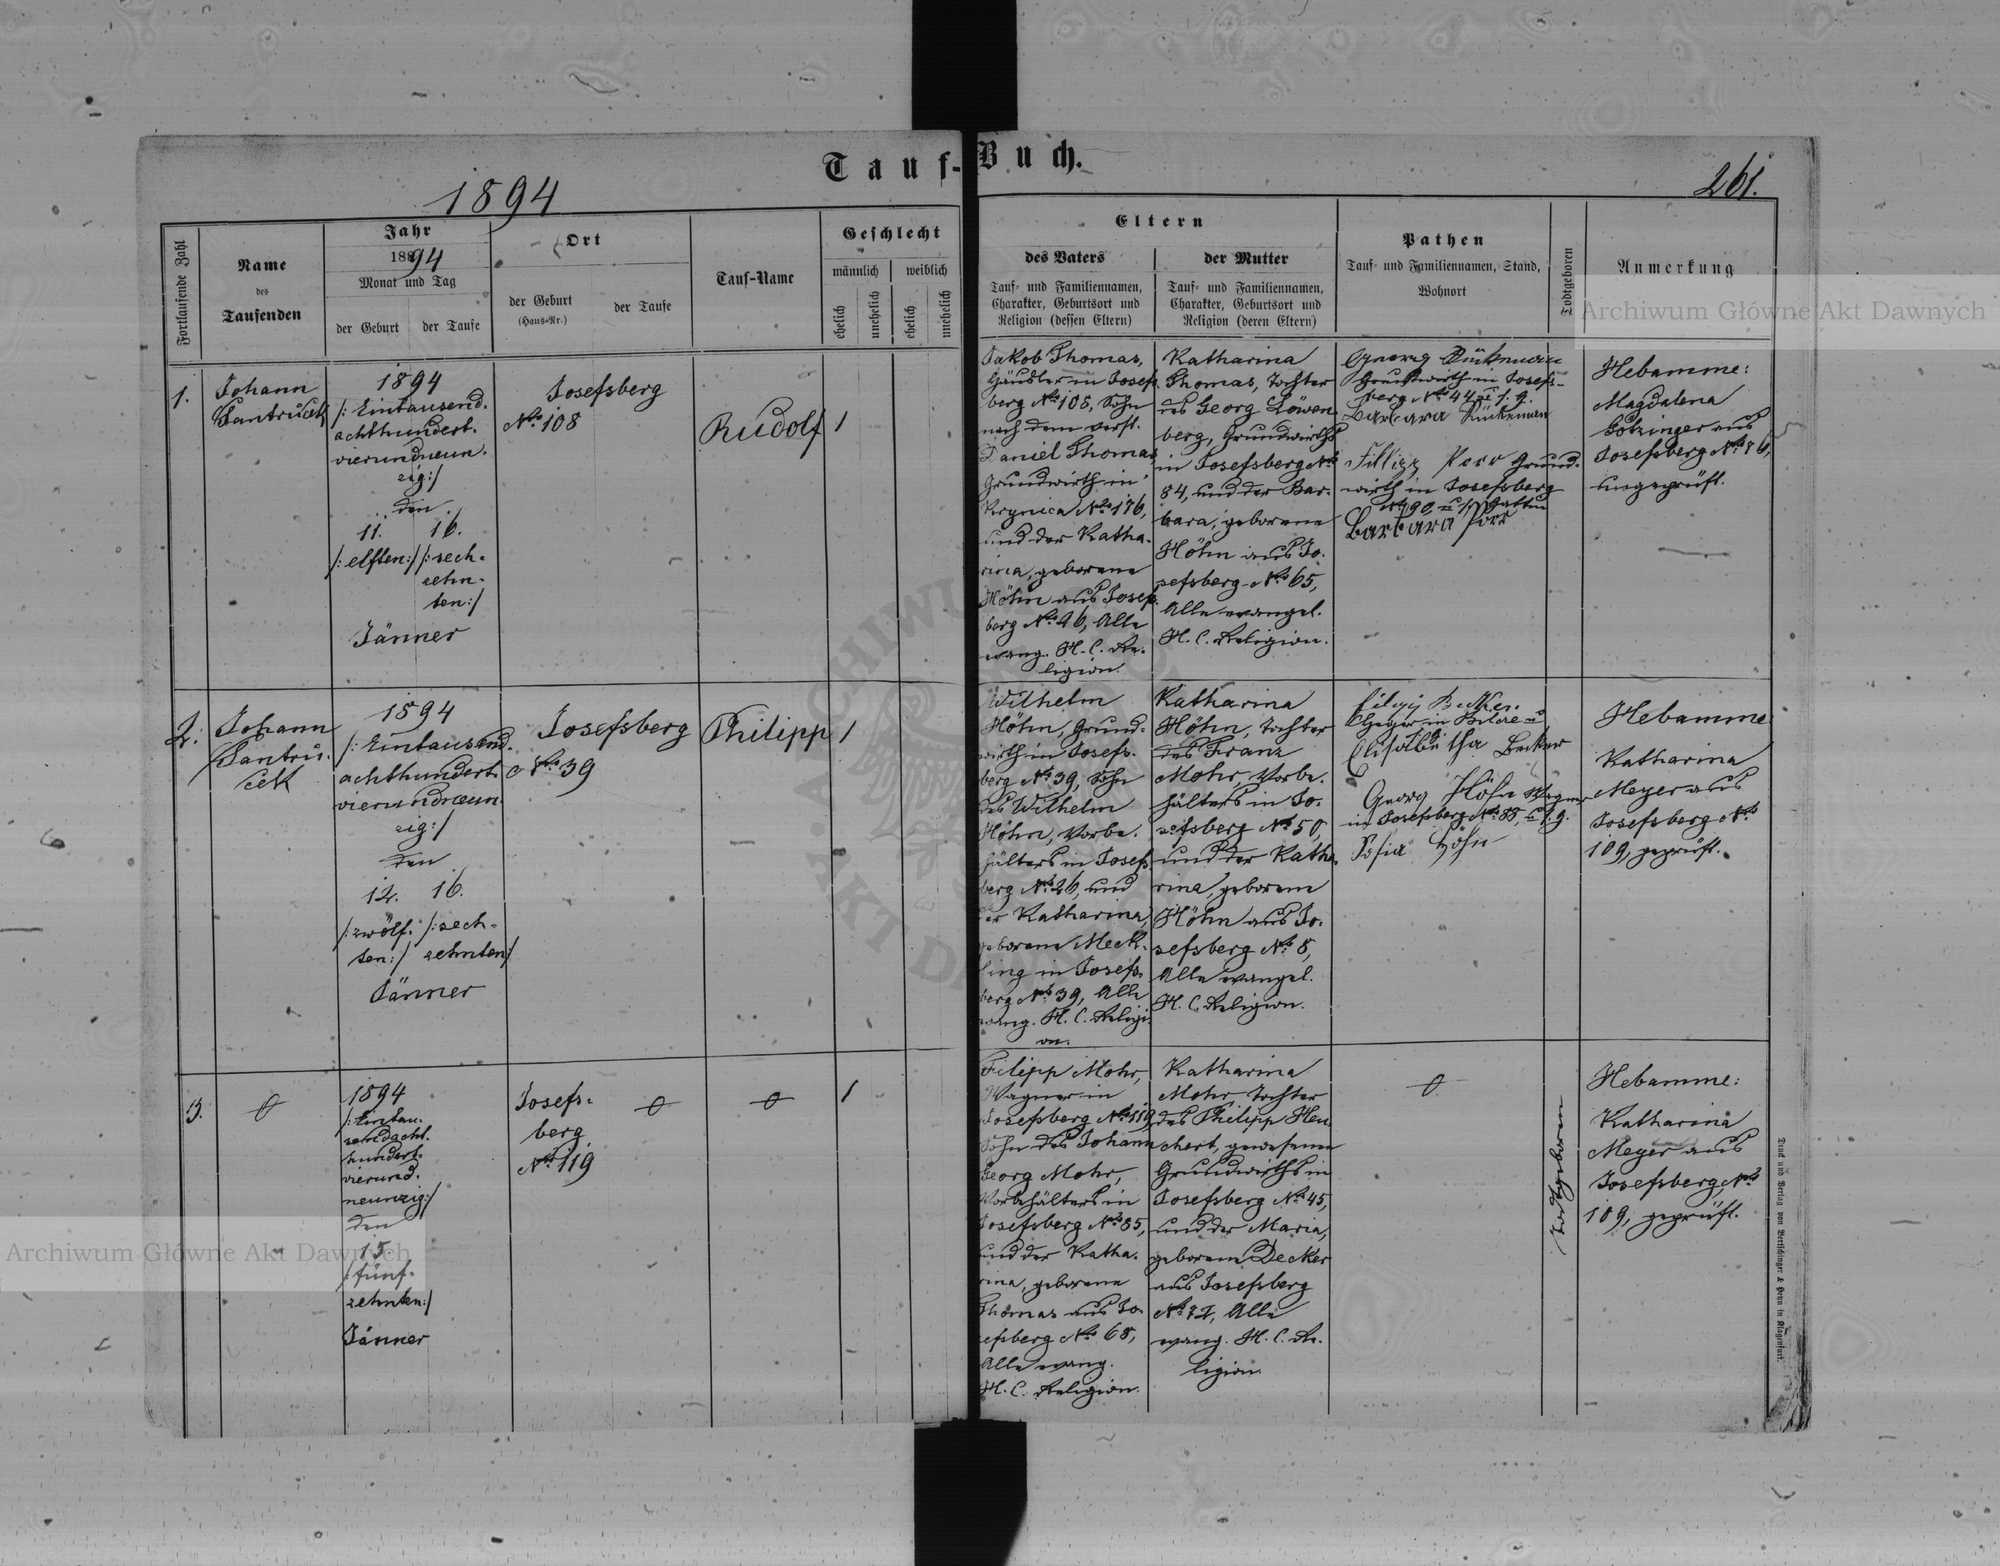 Tauf-Buch.
1894
261.
Fortlaufende Zahl
Name
des
Taufenden
Jahr
1894
Monat und Tag
der Geburt
der Taufe
Ort
der Geburt
(Haus-Nr.)
der Taufe
Tauf-Name
Geschlecht
männlich
weiblich
ehelich
unehelich
ehelich
unehelich
Eltern
des Vaters
Tauf- und Familiennamen,
Charakter, Geburtsort und
Religion (dessen Eltern)
der Mutter
Tauf- und Familiennamen,
Charakter, Geburtsort und
Religion (deren Eltern)
Pathen
Tauf- und Familiennamen, Stand,
Wohnort
Todtgeboren
Anmerkung
1.
Johann
1894
/: Eintausend.
achthundert.
vierundneun.
zig:/
den
11. 16.
/: elften:/ /: sech-
zehn-
ten:/
Jänner
Josefsberg
No 108
Rudolf
1
Jakob Thomas,
Häusler in Josefs
berg No 105, Sohn
nach dem verst.
Daniel Thomas
Grundwirth in
und der Katha-
rina, geborene
Höhn aus Josefs
berg No 46, Alle
evang. H. C. Re-
ligion.
Katharina
Thomas, Tochter
des Georg Löwen
berg, Grundwirths
in Josefsberg No
84, und der Bar-
bara, geborene
Höhn aus Jo-
sefsberg No 65,
Alle evangel.
H. C. Religion.
Georg
Grundwirth in Josefs-
berg No 44
Barbara
Grund-
wirth in Josefsberg
Barbara Porr
Hebamme:
Magdalena
aus
Josefsberg No 76,
ungeprüft.
2.
Johann
1894
/: Eintausend.
achthundert.
vierundneun.
zig:/
den
12. 16.
/: zwölf- /: sech-
ten:/ zehnten:/
Jänner
Josefsberg
No 39
Philipp
1
Wilhelm
Höhn, Grund-
wirth in Josefs-
berg No 39, Sohn
des Wilhelm
Höhn, Vorbe-
hälters in Josefs
berg No 26, und
der Katharina,
geborene Meck-
ling in Josefs-
berg No 39, Alle
evang. H. C. Religi-
on.
Katharina
Höhn, Tochter
des Franz
Mohr, Vorbe-
hälters in Jo-
sefsberg No 50,
und der Katha-
rina, geborene
Höhn aus Jo-
sefsberg No 8,
Alle evangel.
H. C. Religion.
Becker
Elisabetha Becker
Georg Höhn Wagner
in Josefsberg No 88
Sofia Höhn
Hebamme
Katharina
Meyer aus
Josefsberg No
109, geprüft.
3.
1894
/: Eintau-
sendacht-
hundert-
vierund-
neunzig:/
den
15.
/: fünf-
zehnten:/
Jänner
Josefs-
berg
No 119
1
Filipp Mohr,
Wagner in
Josefsberg No 119
Sohn des Johann
Georg Mohr,
Vorbehälters in
Josefsberg No 85,
und der Katha-
rina, geborene
Thomas aus Jo-
sefsberg No 68,
Alle evang.
H. C. Religion.
Katharina
Mohr, Tochter
des Philipp Heu
chert, gewesenen
Grundwirths in
Josefsberg No 45,
und der Maria,
geborene Decker
aus Josefsberg
Alle
evang. H. C. Re-
ligion.
todtgeboren
Hebamme:
Katharina
Meyer aus
Josefsberg, No
109, geprüft.
Druck und Verlag von Bertschinger & Heyn in Klagenfurt.
Archiwum Główne Akt Dawnych
Archiwum Główne Akt Dawnych